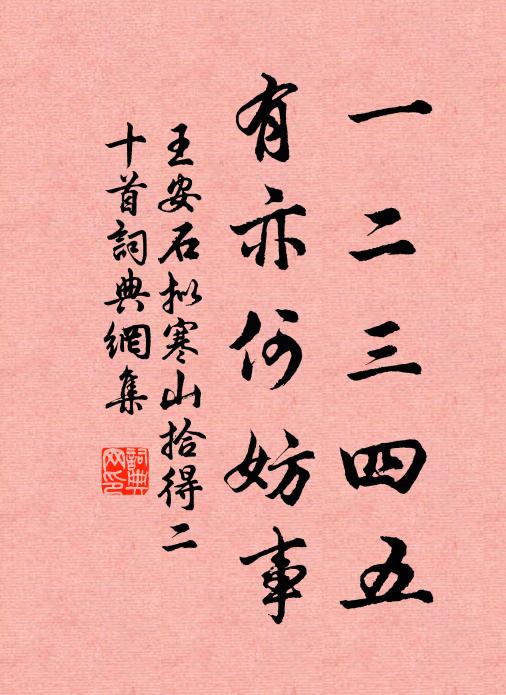 一二三四五
有亦何妨事
王安石拟寒山拾得二
十首詞典網集
詞典
网印